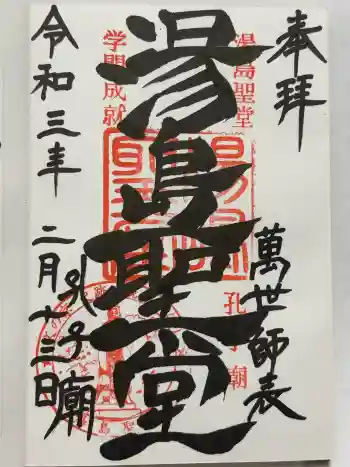 奉拝
萬世師表
湯島聖堂
孔子廟
湯島聖堂
学問成就
孔子廟
令和三年 二月十三日